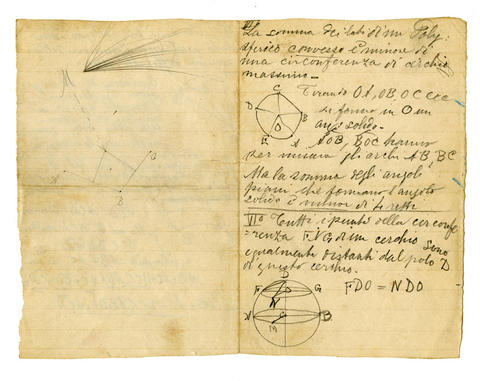 VIº
La somma dei lati di un Poly:
sferico convesso è minore di
una circonferenza di archio
massimo.-
Tirando OA, OB, OC ecc
si forma in O un
ang: solido.-
AOB, BOC hanno
per misura gli archi AB, BC
Ma la somma degli angoli
piani che formano l'angolo
solido è minor di 4 retti
VIIº Tutti i punti della circonfe
=renza FNG di un cerchio sono
egualmente distanti dal polo D
di questo cerchio.
FDO = NDO
C
D
B
O
E
A
D
F
G
N
C
B
M
A
B